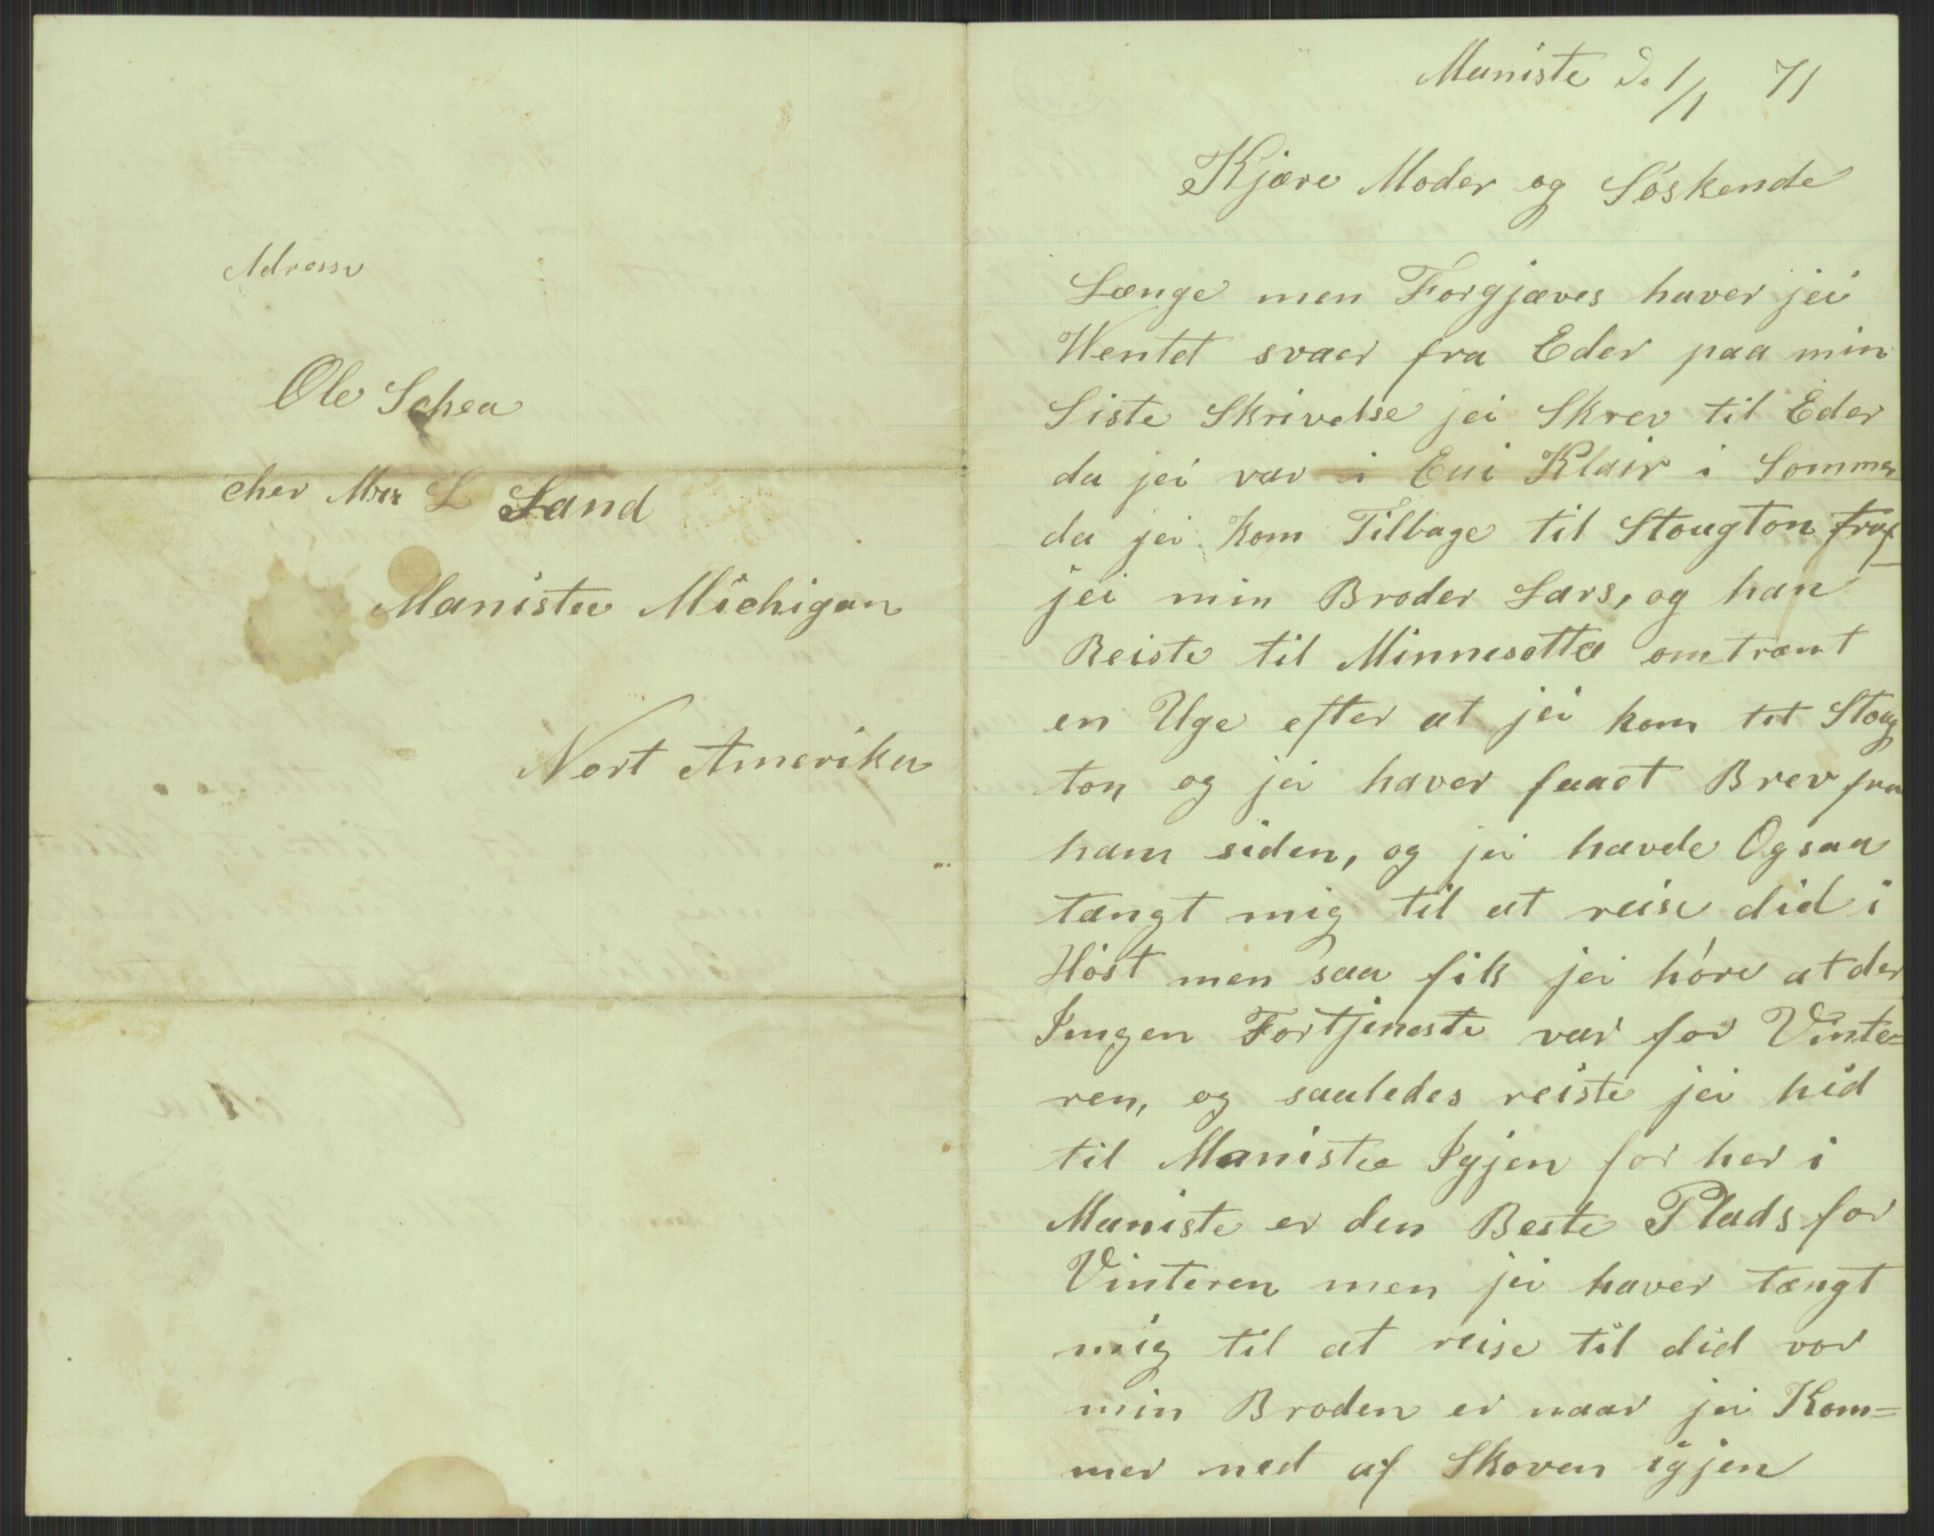 Adresse
Ole Schea
cher Mrs L Sand
Manistee Michigan
Nort Amerika
Maniste d. 1/1 71
Kjære Moder og Söskende
Længe men Forgjæves haver jei
Wentet svaer fra Eder paa min
Siste Skrivelse jei Skrev til Eder
da jei var i Eui Klair i Sommer
da jei kom Tilbage til Stougton traf
jei min Broder Lars, og han
Reiste til Minnesotta omtrænt
en Uge efter at jei kom til Stoug
ton og jei haver faaet Brev fra
ham siden, og jei havde Ogsaa
tængt mig til at reise did i
Höst men saa fik jei höre at der
Inngen Fortjeneste var for Vinte=
ren, og saaledes reiste jei hid
til Manistee Igjen for her i
Maniste er den Beste Plads for
Vinteren men jei haver tængt
mig til at reise til did vor
min Broden er naar jei Kom=
mer ned af Skoven igjen